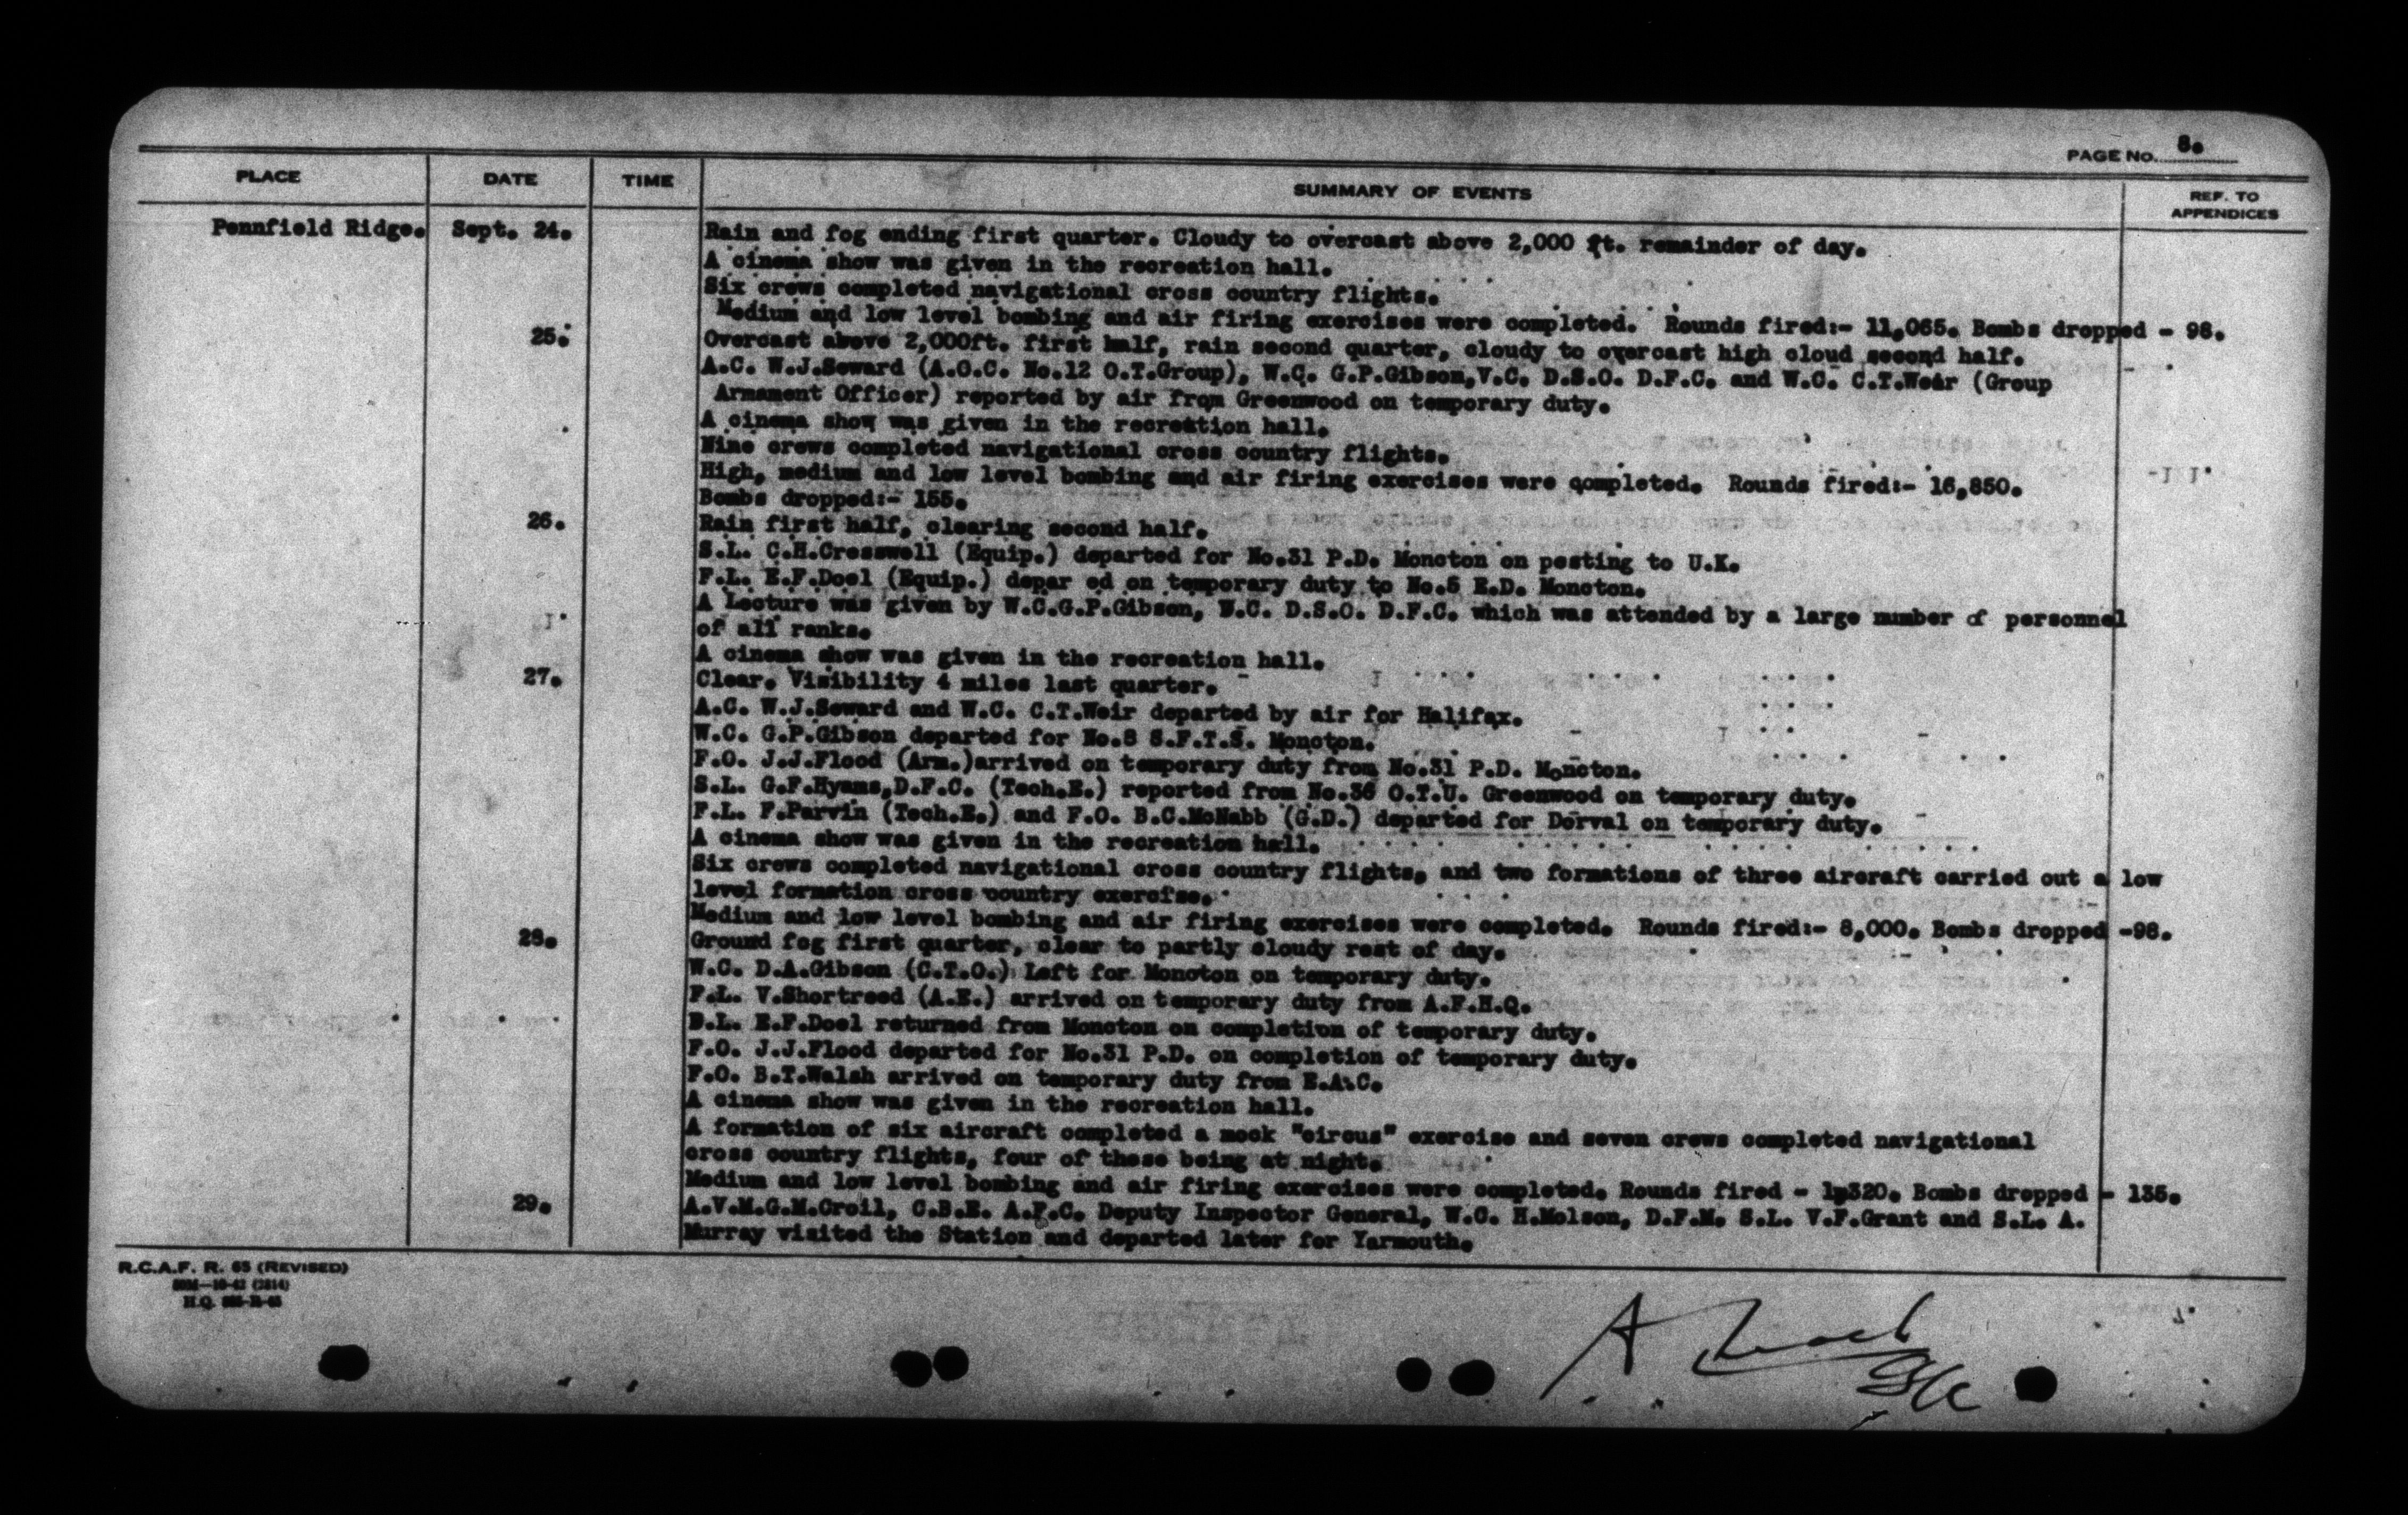 PAGE NO. 8.
PLACE DATE TIME SUMMARY OF EVENTS REF. TO APPENDICES
Pennfield Ridge. Sept. 24. Rain and fog ending first quarter. Cloudy to overcast above 2,000 ft. remainder of day.
A cinema show was given in the recreation hall.
Six crews completed navigational cross country flights.
Medium and low level bombing and air firing exercises were completed. Rounds fired:- 11,065. Bombs dropped - 98.
25. Overcast above 2,000ft. first half, rain second quarter, cloudy to overcast high cloud second half.
A.C. W.J.Seward (A.O.C. No.12 O.T.Group), W.C. G.P.Gibson,V.C. D.S.O. D.F.C. and W.C. C.T.Weir (Group
Armament Officer) reported by air from Greenwood on temporary duty.
A cinema show was given in the recreation hall.
Nine crews completed navigational cross country flights.
High, medium and low level bombing and air firing exercises were completed. Rounds fired:- 16,850.
Bombs dropped:- 155.
26. Rain first half, clearing second half.
S.L. C.H.Cresswell (Equip.) departed for No.31 P.D. Moncton on posting to U.K.
F.L. E.F.Doel (Equip.) depar ed on temporary duty to No.5 E.D. Moncton.
A Lecture was given by W.C.G.P.Gibson, V.C. D.S.O. D.F.C. which was attended by a large number of personnel
of all ranks.
A cinema show was given in the recreation hall.
27. Clear. Visibility 4 miles last quarter.
A.C. W.J.Seward and W.C. C.T.Weir departed by air for Halifax.
W.C. G.P.Gibson departed for No.8 S.F.T.S. Moncton.
F.O. J.J.Flood (Arm.)arrived on temporary duty from No.31 P.D. Moncton.
S.L. G.F.Hyams,D.F.C. (Tech.E.) reported from No.36 O.T.U. Greenwood on temporary duty.
F.L. F.Parvin (Tech.E.) and F.O. B.C.McNabb (G.D.) departed for Dorval on temporary duty.
A cinema show was given in the recreation hall.
Six crews completed navigational cross country flights, and two formations of three aircraft carried out a low
level formation cross country exercise.
Medium and low level bombing and air firing exercises were completed. Rounds fired:- 8,000. Bombs dropped -98.
28. Ground fog first quarter, clear to partly cloudy rest of day.
W.C. D.A.Gibson (C.T.O.) Left for Moncton on temporary duty.
F.L. V.Shortreed (A.E.) arrived on temporary duty from A.F.H.Q.
E.F.Doel returned from Moncton on completion of temporary duty.
F.O. J.J.Flood departed for No.31 P.D. on completion of temporary duty.
F.O. B.T.Walsh arrived on temporary duty from E.A.C.
A cinema show was given in the recreation hall.
A formation of six aircraft completed a mock "circus" exercise and seven crews completed navigational
cross country flights, four of these being at night.
Medium and low level bombing and air firing exercises were completed. Rounds fired - Bombs dropped - 135.
29. A.V.M.G.M.Croil, C.B.E. A.F.C. Deputy Inspector General, W.C. H.Molson, D.F.M. S.L. V.F.Grant and S.L. A.
Murray visited the Station and departed later for Yarmouth.
R.C.A.F. R. 65 (REVISED)
H.Q.